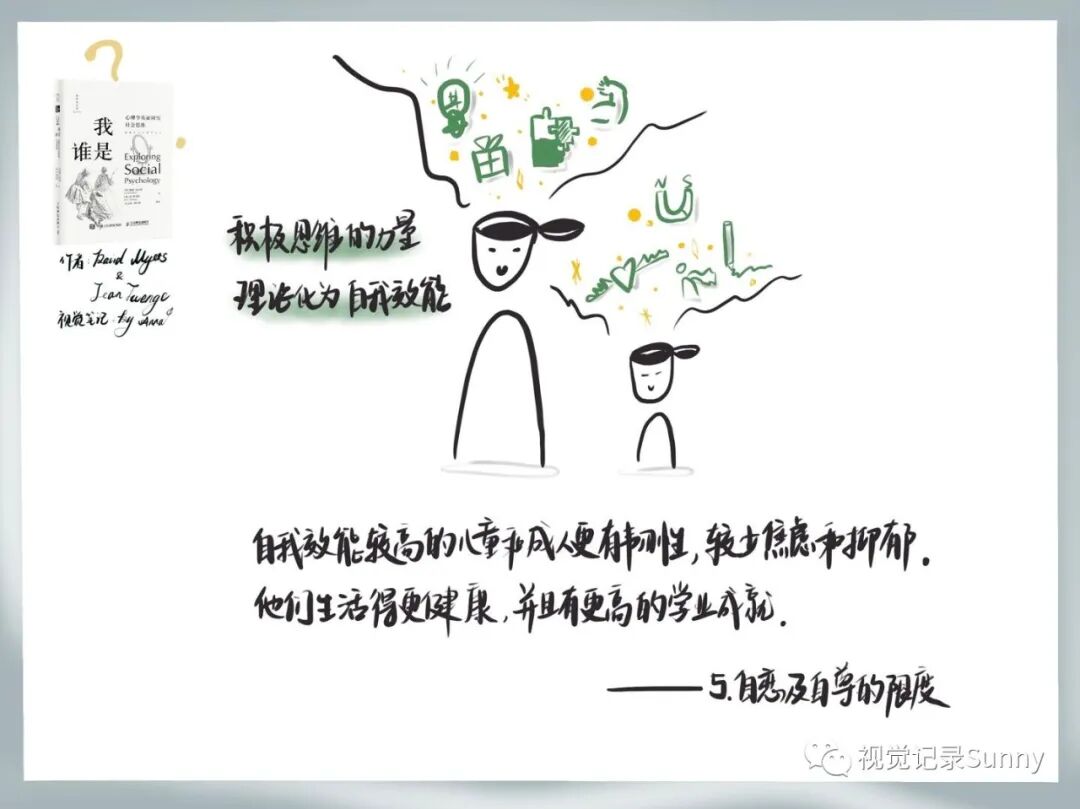 ?
我
谁是
心理学家如何写
社会思维
Exploring
Social
Psychology
作者: David Myers
&
Jean Twenge
视觉笔记: by Anna
积极思维的力量
理论化为自我效能
N S
自我效能较高的儿童和成人更有韧性,较少焦虑和抑郁.
他们生活得更健康,并且有更高的学业成就.
——5.自恋及自尊的限度
视觉记录Sunny